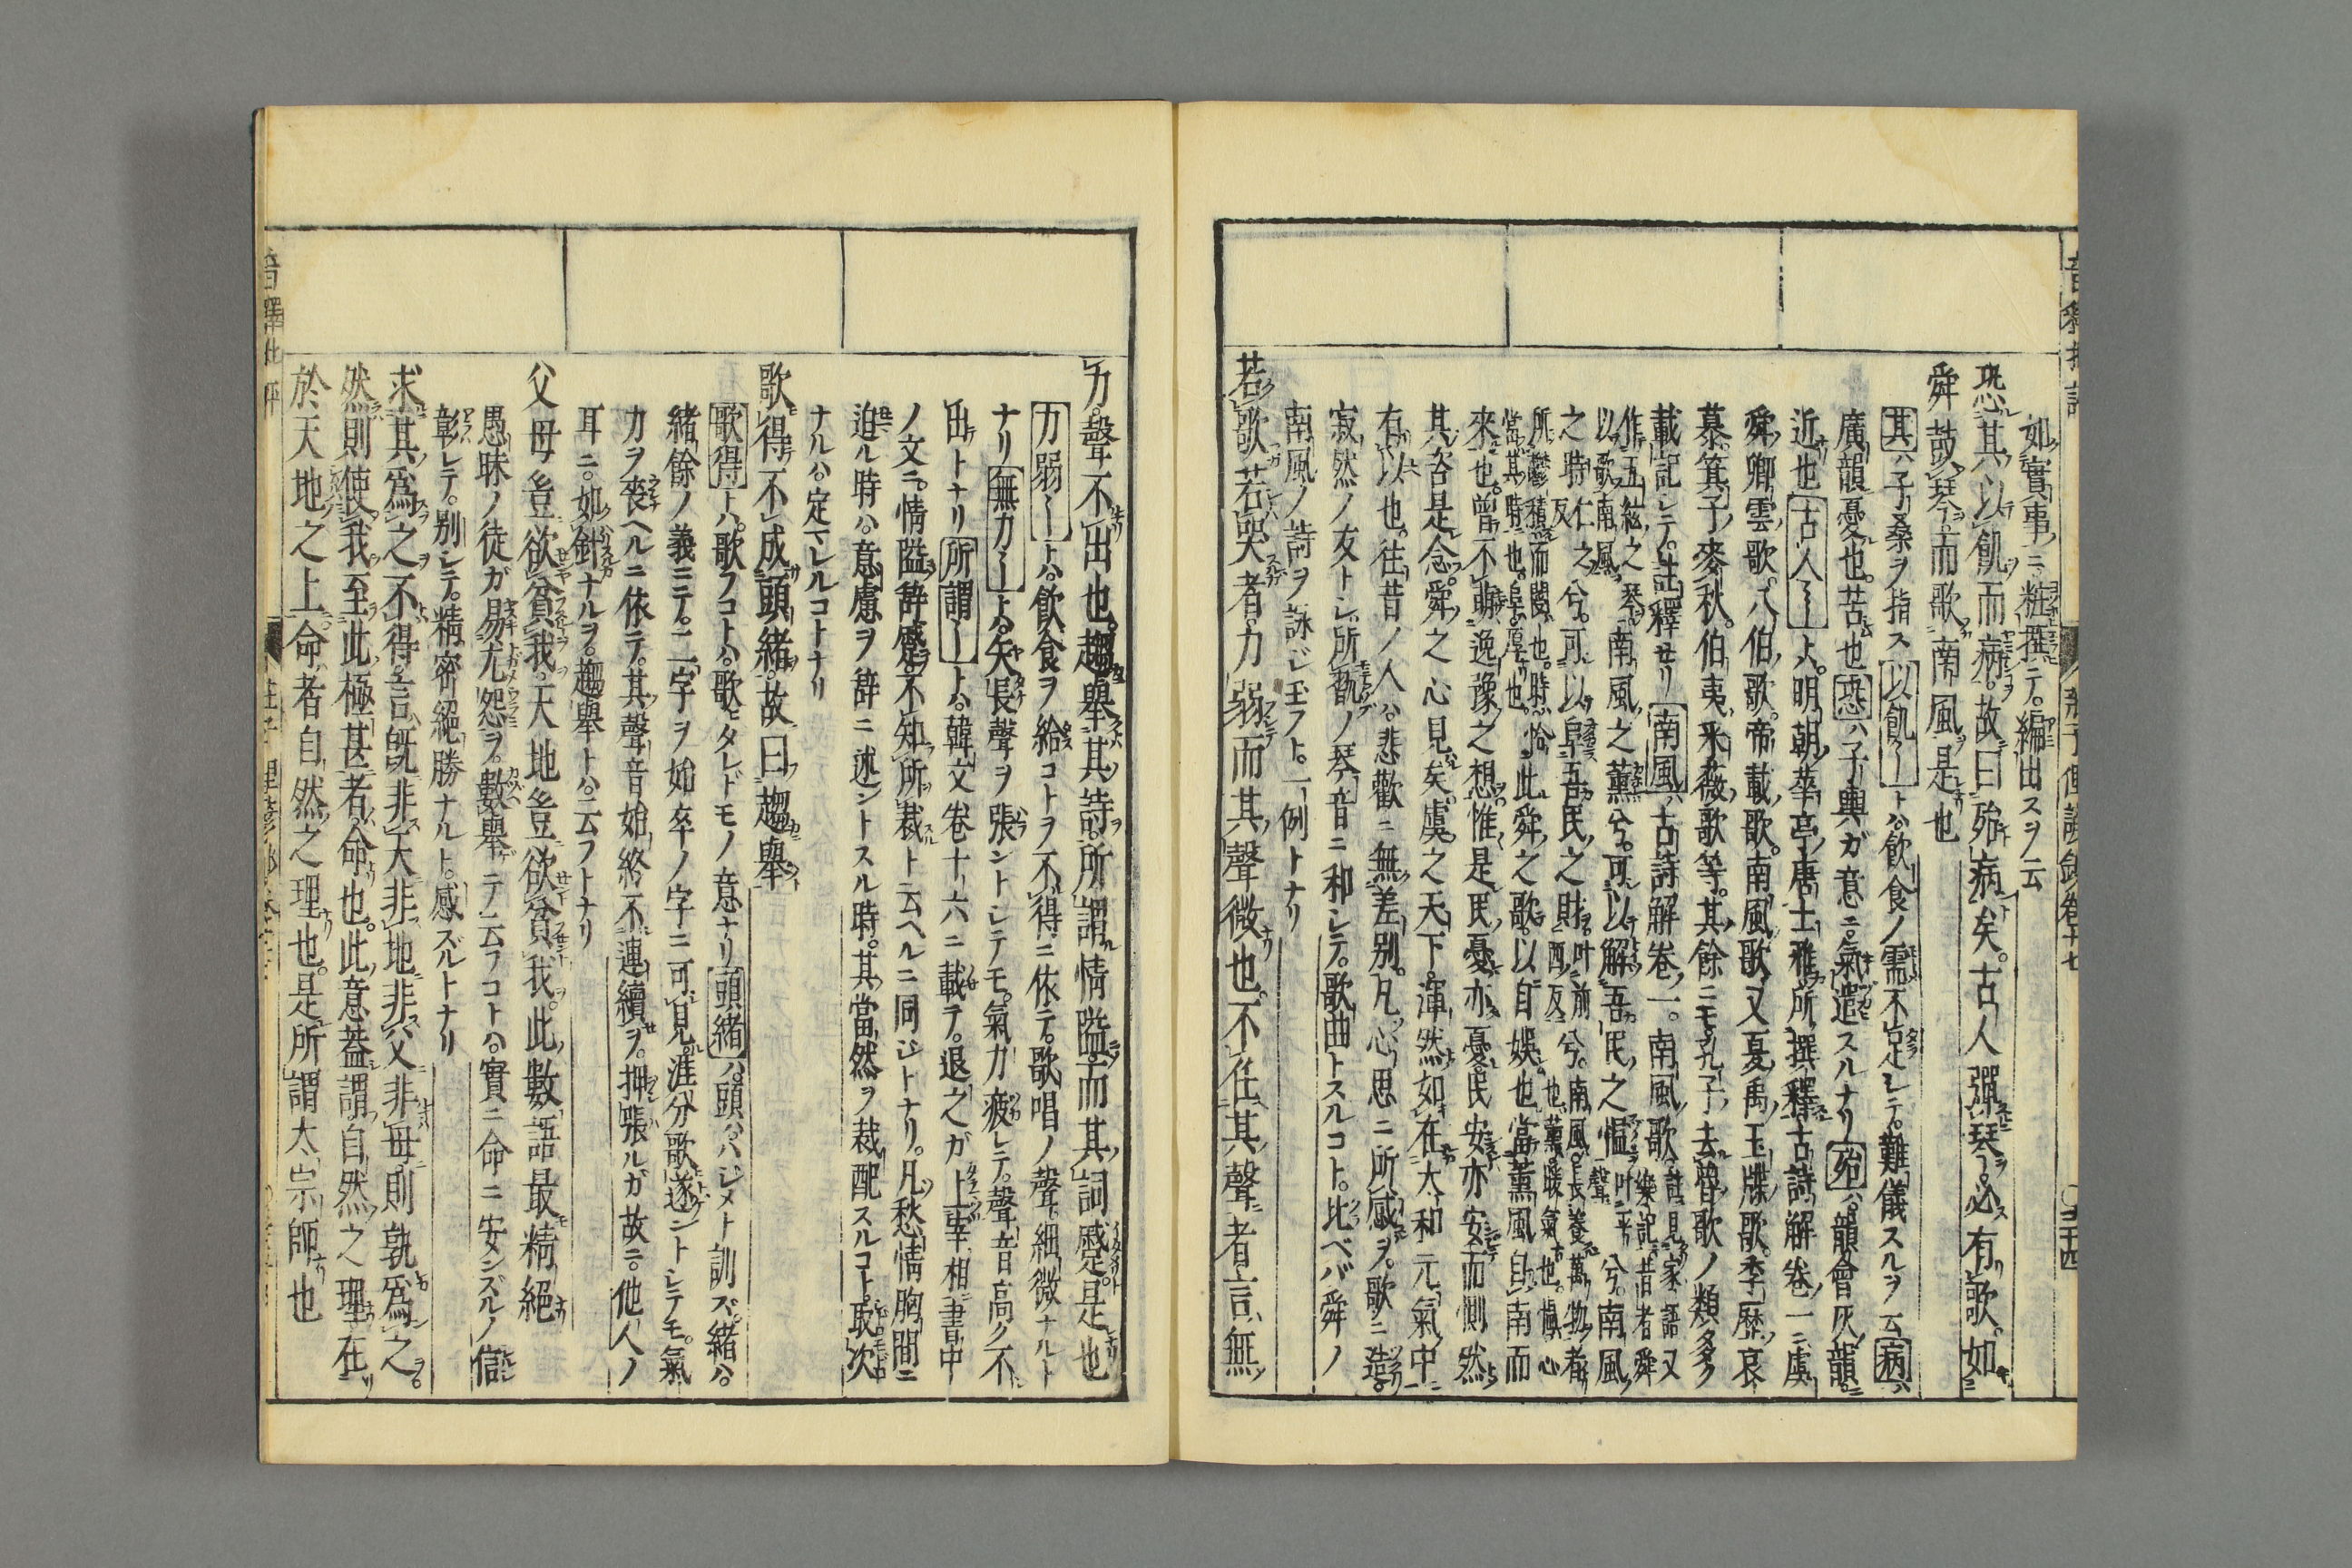 如實事ニ粧撰テ。編出スヲ云
恐其以飢而病。故曰殆病矣。古人彈琴。必有歌。如
舜鼓琴而歌南風是也
其ハ子桑ヲ指ス以飢――トハ。飲食ノ需不足レテ。難儀スルヲ云病ハ
廣韻憂也。苦也恐ハ子輿ガ意ニ。氣遣スルナリ殆ハ。韻會灰韻。
近也古人――ト。明朝華亭唐士雅所撰釋古詩解卷一ニ。虞
舜卿雲歌。八伯歌。帝載歌。南風歌又夏禹玉牒歌。李歷哀
慕。箕子麥秋。伯夷采薇歌等。其餘ニモ孔子去魯歌ノ類多ク
載記レテ。註釋セリ南風ハ古詩解卷一。南風歌註見家語又樂記昔者舜
作五絃之琴以歌南風南風之薰兮。可以解吾民之慍叶平聲兮。南風
之時仁之反兮。可以阜吾民之財叶前西反兮。南風長養萬物者也薰暖氣也。慍心
所鬱積而悶也。時恰當其時也。阜厚也此舜之歌。以自娛也當薰風自南而
來也。曾不萌逸豫之想惟是民憂亦憂民安亦安而惻然
其咨是念。舜之心見矣。虞之天下。渾然如在大和元氣中
有以也。往昔ノ人ハ。悲歡ニ無差別。凡心思ニ所感ヲ。歌ニ造。
寂然ノ友トレ所翫ノ琴音ニ和レテ。歌曲トスルコト。比ベバ舜ノ
南風ノ詩ヲ詠ジ玉フト。一例トナリ
若歌若哭者。力弱而其聲微也。不任其聲者言無
力。聲不出也。趨舉其詩。所謂情隘而其詞蹙。是也
力弱――トハ。飲食ヲ給コトヲ不得ニ依テ。歌唱ノ聲細微ナルト
ナリ無力――トハ。矢長聲ヲ張ントレテモ。氣力疲レテ。聲音高ク不
出トナリ所謂――トハ。韓文卷十六ニ載テ。退之ガ上宰相書中
ノ文ニ。情隘辭蹙不知所裁ト云ヘルニ同ジトナリ。凡愁情胸間ニ
迫ル時ハ。意慮ヲ辭ニ述ントスル時。其當然ヲ裁配スルコト。取次
ナルハ。定マレルコトナリ
歌得不成頭緒。故曰趨舉
歌得トハ。歌フコトハ。歌モタレドモノ意ナリ頭緒ハ。頭ハハジメト訓ズ。緒ハ。
緒餘ノ義ニテ。二字ヲ始卒ノ字ニ可見。涯分歌遂ントレテモ。氣
力ヲ喪ヘルニ依テ。其聲音始終不連續ヲ。押張ルガ故ニ。他人ノ
耳ニ。如針ナルヲ。趨舉トハ。云フトナリ
父母豈欲貧我。天地豈欲貧我。此數語最精絕
愚昧ノ徒ガ易尤怨ヲ。數舉テ云フコトハ。實ニ命ニ安ンズルノ信
彰レテ。別レテ。精密絕勝ナルト。感ズルトナリ
求其爲之不得。言既非天非地非父非母。則孰爲之。
然則使我至此極甚者。命也。此意蓋謂自然之理在
於天地之上。命者自然之理也。是所謂太宗師也